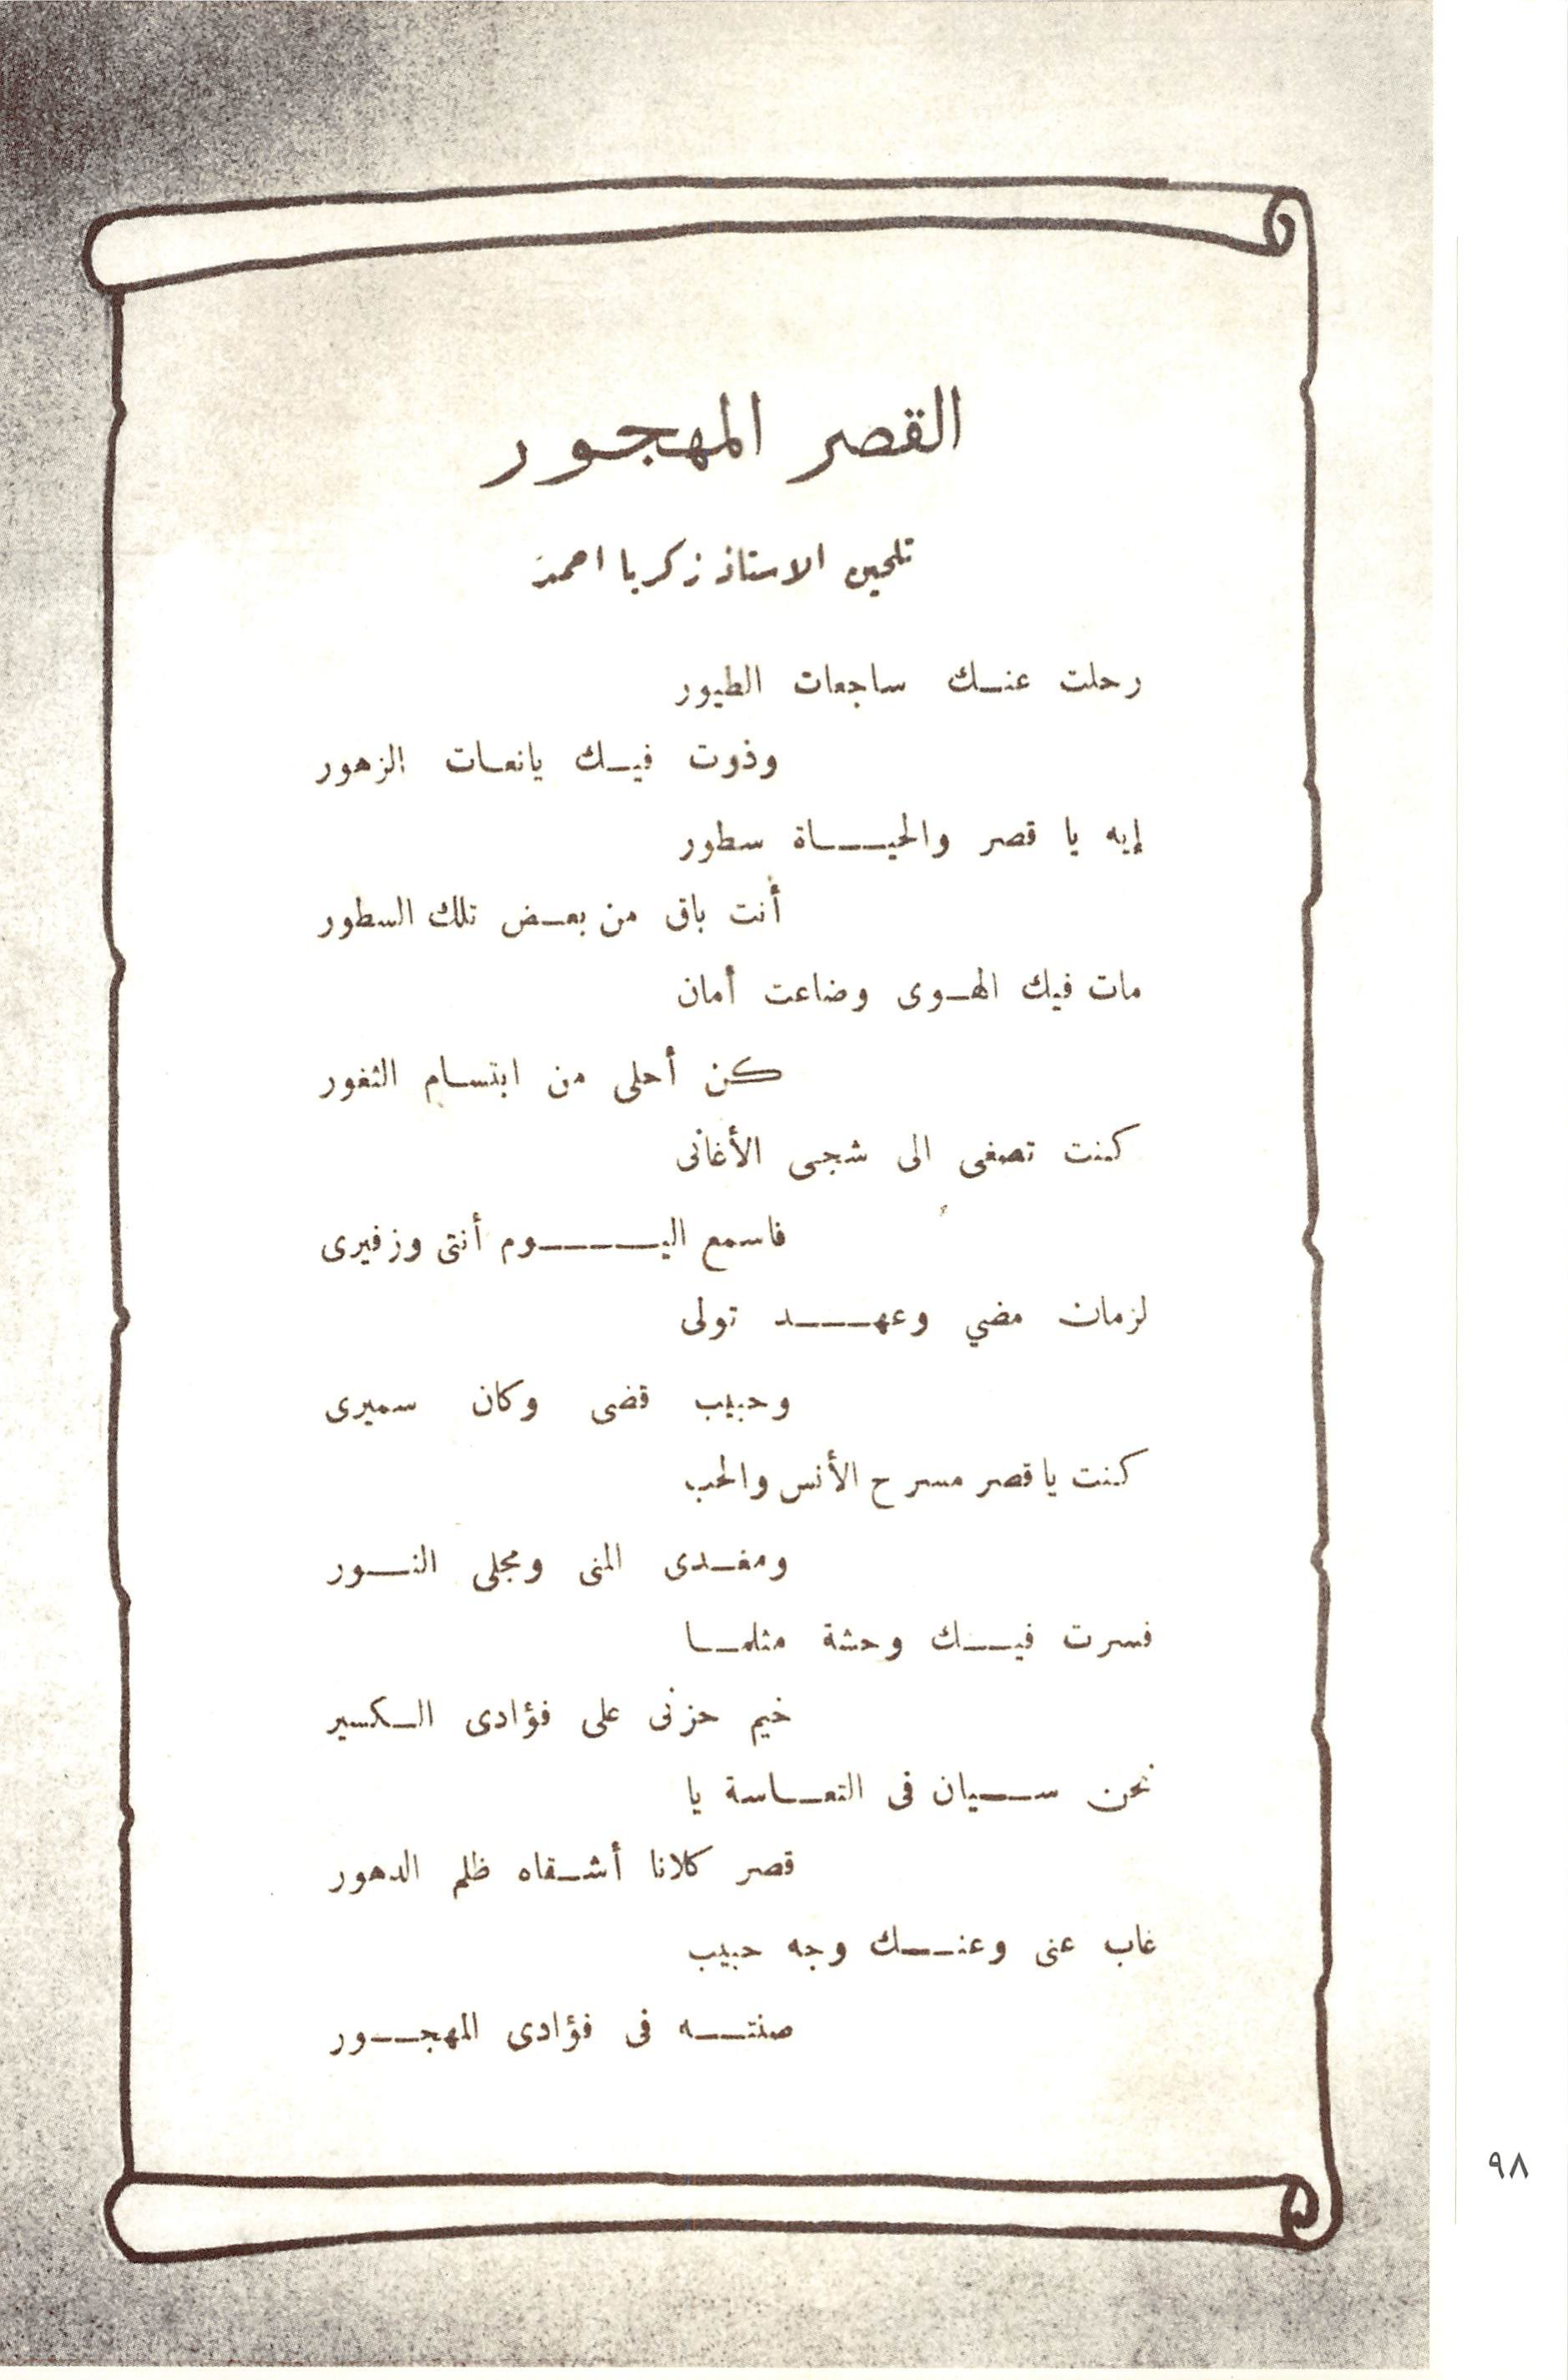 القصر المهجور
تلحين الاستاذ زكريا احمد
رحلت عنك ساجعات الطيور
وذوت فيك يانعات الزهور
إيه يا قصر والحياة سطور
أنت باق من بعض تلك السطور
مات فيك الهوى وضاعت أمان
كن أحلى من ابتسام الثغور
كنت تصغى الى شجى الأغانى
فاسمع اليوم أنتى وزفيرى
لزمان مضي وعهد تولى
وحبيب قضى وكان سميرى
كنت يا قصر مسرح الأنس والحب
ومغدى المنى ومجلى النور
فسرت فيك وحشة مثلما
خيم حزنى على فؤادى الكسير
نحن سيان فى التعاسة يا
قصر كلانا أشقاه ظلم الدهور
غاب عنى وعنك وجه حبيب
صنته فى فؤادى المهجور
٩٨